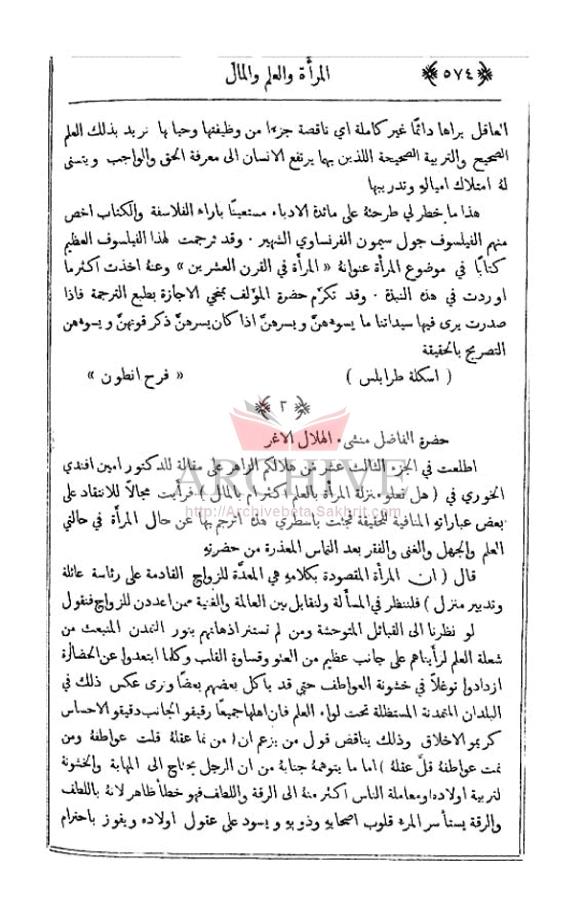 ﴿٥٧٤﴾ المرأة والعلم والمال
العاقل يراها دائمًا غير كاملة اي ناقصة جزءا من وظيفتها وحياتها نريد بذلك العلم
الصحيح والتربية الصحيحة اللذين بهما يرتفع الانسان الى معرفة الحق والواجب ويتسنى
لهُ امتلاك امياله وتدريبها
هذا ما خطر لي طرحتهُ على مائدة الادباء مستعينًا باراء الفلاسفة والكتاب اخص
منهم الفيلسوف جول سيمون الفرنساوي الشهير ٠ وقد ترجمت لهذا الفيلسوف العظيم
كتابًا في موضوع المرأة عنوانهُ « المرأة في القرن العشرين » وعنهُ اخذت اكثرما
اوردت في هذه النبذة ٠ وقد تكرَّم حضرة المؤلف بمنحي الاجازة بطبع الترجمة فاذا
صدرت يرى فيها سيداتنا ما يسوءهنَّ ويسرهنَّ اذا كان يسرهنَّ ذكر قوتهنَّ ويسوءهن
التصريح بالحقيقة
( اسكلة طرابلس ) « فرح انطون »
﴿ ٢ ﴾
حضرة الفاضل منشىء الهلال الاغر
اطلعت في الجزء الثالث عشر من هلالكم الزاهر على مقالة للدكتور امين افندي
الخوري في ( هل تعلو منزلة المرأة بالعلم اكثر ام بالمال ) فرأيت مجالاً للانتقاد على
بعض عباراته المنافية للحقيقة فجئت باسطري هذه اترجم بها عن حال المرأة في حالتي
العلم والجهل والغنى والفقر بعد التماس المعذرة من حضرته
قال ( ان المرأة المقصودة بكلامه هي المعدَّة للزواج القادمة على رئاسة عائلة
وتدبير منزل ) فلننظر في المسألة ولنقابل بين العالمة والغنية ممن اعددن للزواج فنقول
لو نظرنا الى القبائل المتوحشة ومن لم تستنر اذهانهم بنور التمدن المنبعث من
شعلة العلم لرأيناهم على جانب عظيم من العتو وقساوة القلب وكلما ابتعدوا عن الحضارة
ازدادوا توغلاً في خشونة العواطف حتى قد ياكل بعضهم بعضًا ونرى عكس ذلك في
البلدان المتمدنة المستظللة تحت لواء العلم فان اهلها جميعًا رقيقو الجانب دقيقو الاحساس
كريمو الاخلاق وذلك يناقض قول من يزعم ان ( من نما عقلهُ قلت عواطفهُ ومن
نمت عواطفهُ قلَّ عقلهُ ) اما ما يتوهمهُ جنابهُ من ان الرجل يحتاج الى المهابة والخشونة
لتربية اولاده ومعاملة الناس اكثر منهُ الى الرقة واللطف فهو خطأ ظاهر لانهُ باللطف
والرقة يستأسر المرء قلوب اصحابه وذويه ويسود على عقول اولاده ويفوز باحترام
ARCHIVE
http://Archivebeta.Sakhrit.com